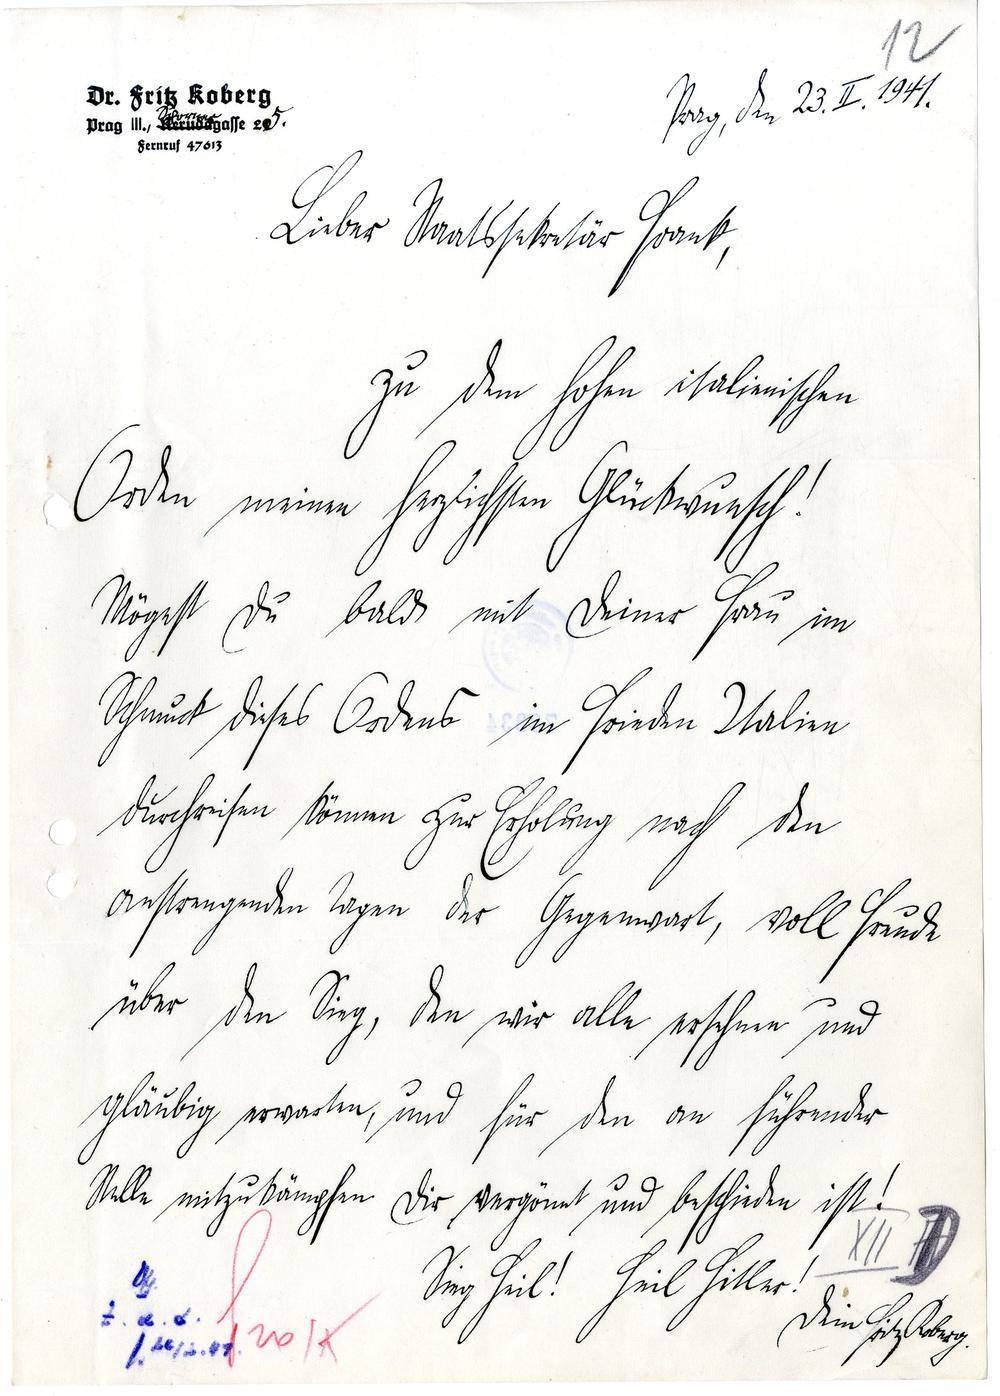 12
Dr. Fritz Koberg
Prag III., gasse 5.
Fernruf 47613
Prag, den 23. II. 1941.
Lieber Staatssekretär Frank,
zu dem hohen italienischen
Orden meinen herzlichsten Glückwunsch!
Mögest Du bald mit Deiner Frau im
Schmuck dieses Ordens im Frieden Italien
durchreisen können zur Erholung nach den
anstrengenden Tagen der Gegenwart, voll Freude
über den Sieg, den wir alle ersehnen und
gläubig erwarten, und für den an führender
Stelle mitzukämpfen Dir vergönnt und beschieden ist!
Sieg Heil! Heil Hitler!
XII D
Dein Fritz Koberg.
z. d. A.